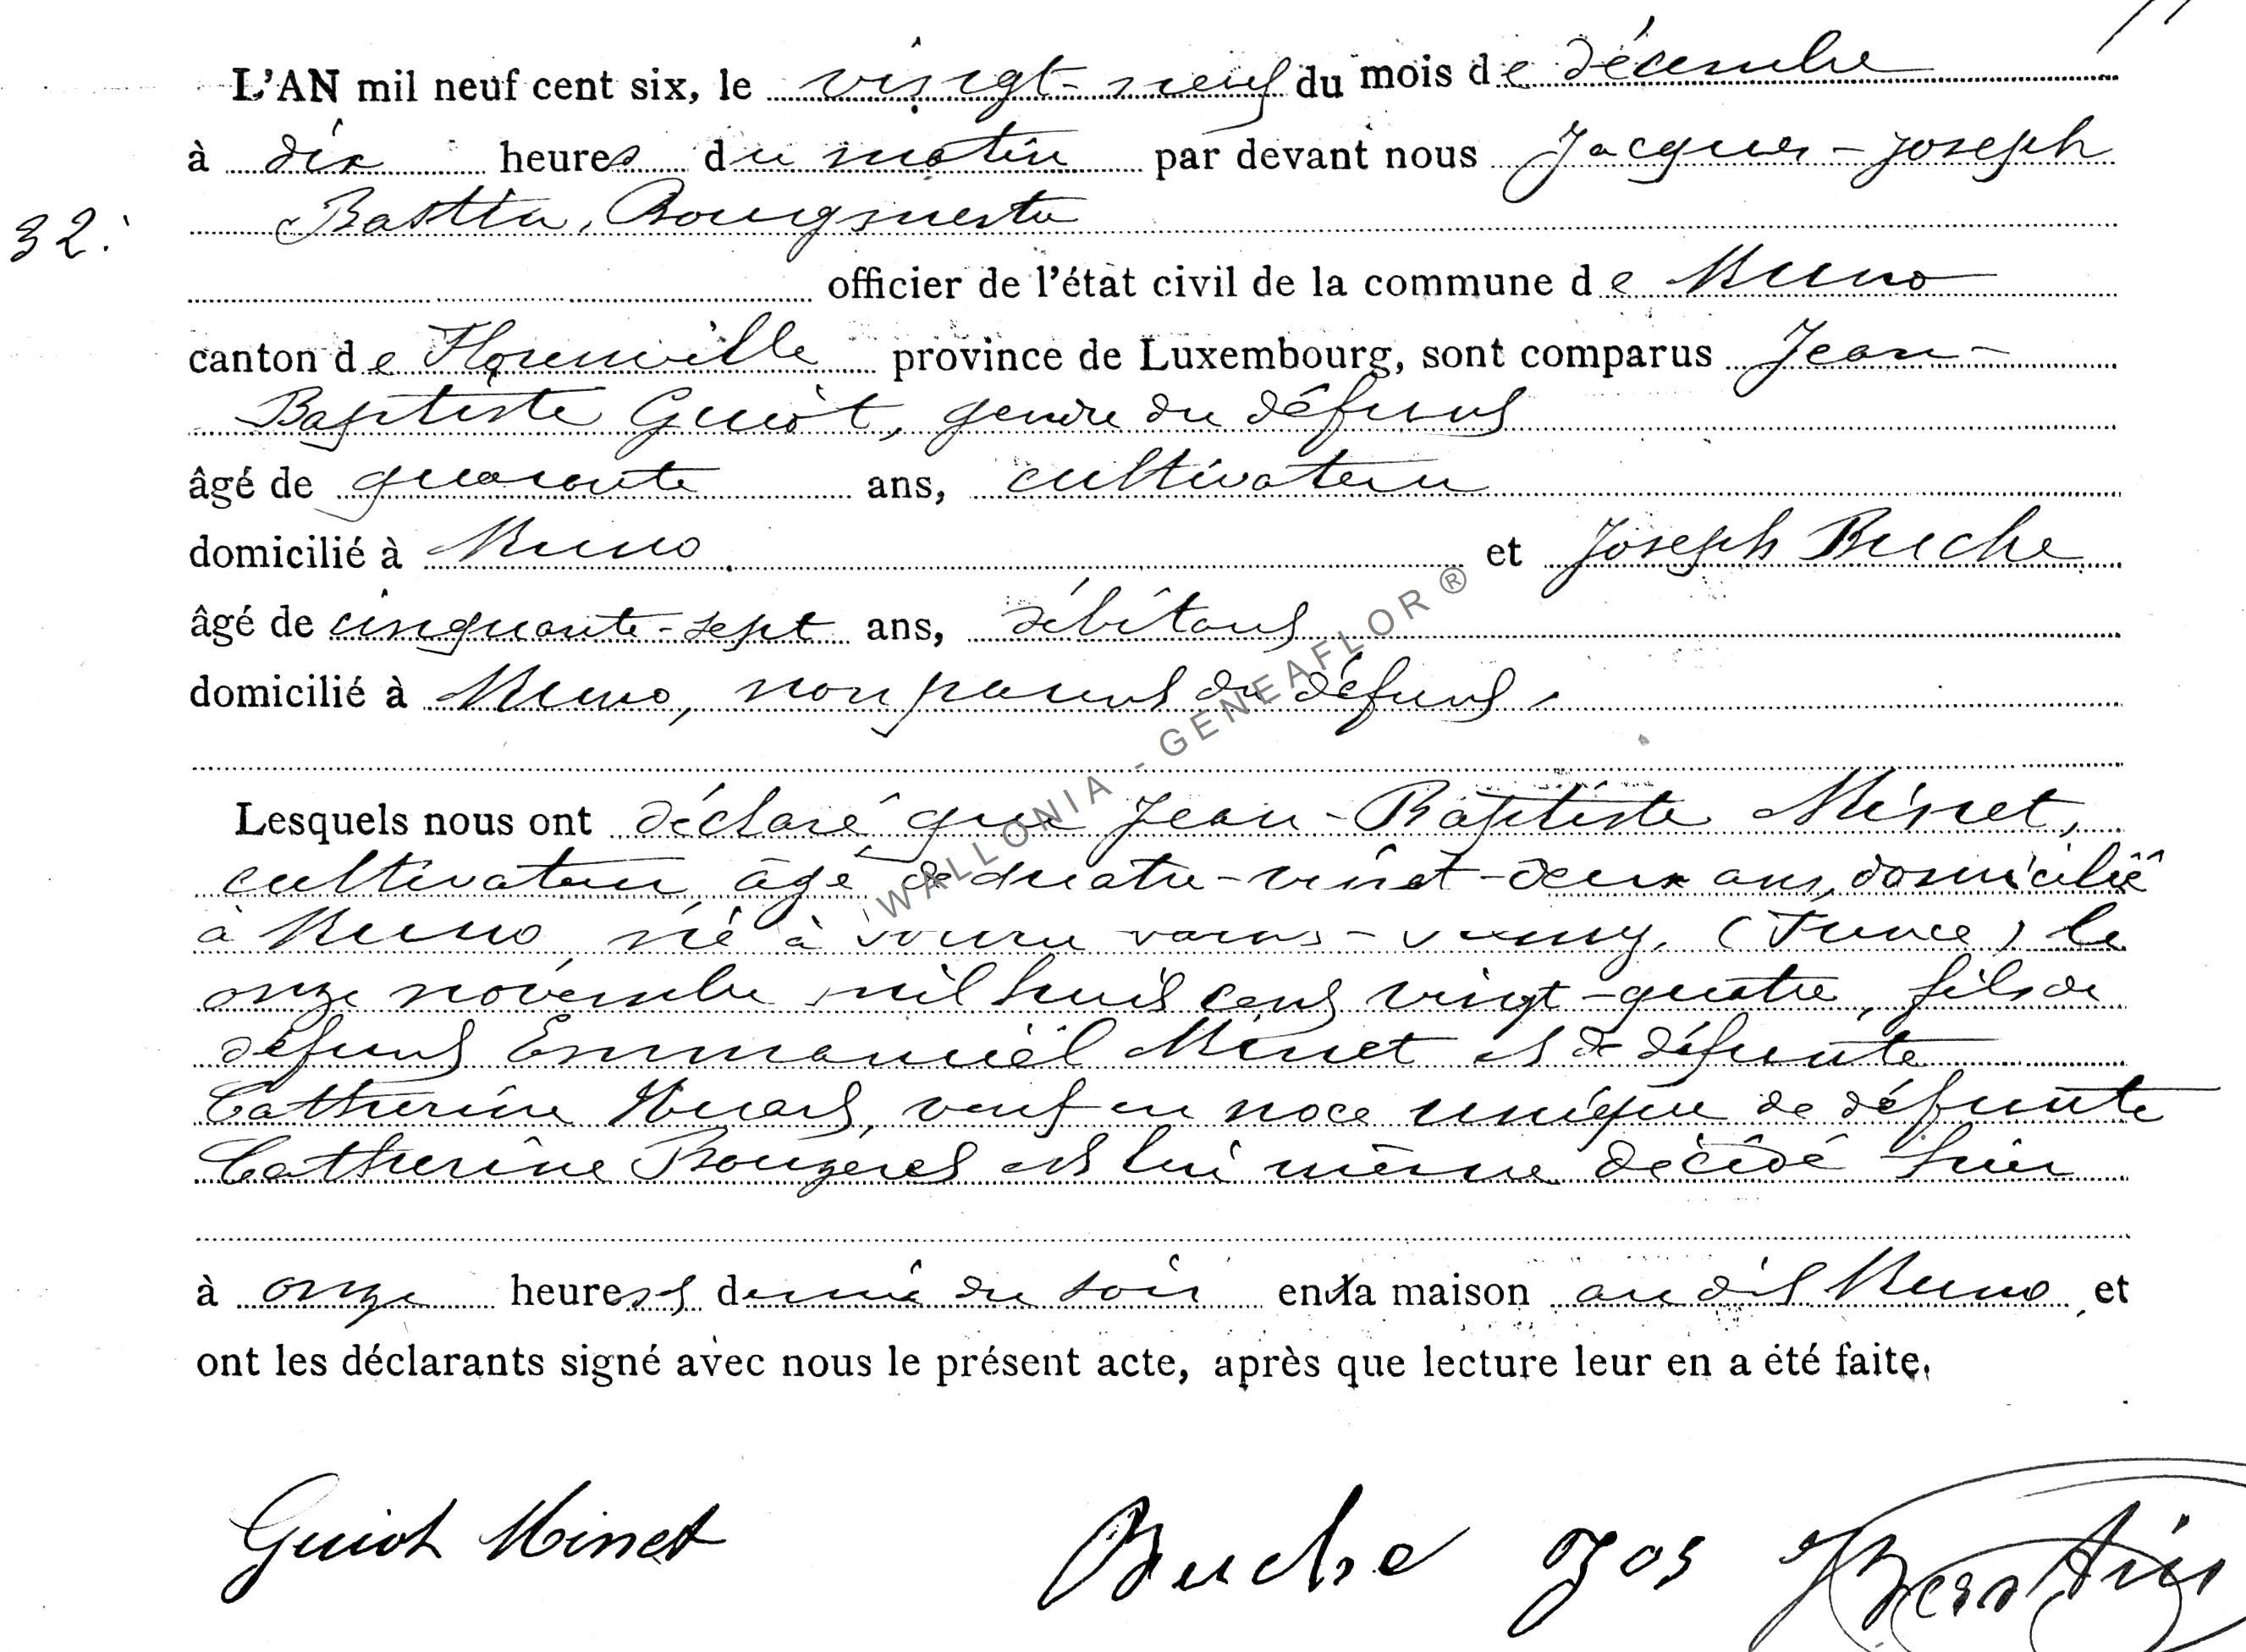 L'AN mil neuf cent six, le vingt-neuf du mois de décembre
à dix heures du matin par devant nous Jacques-Joseph
32. Bastin, Bourgmestre
officier de l'état civil de la commune de Muno
canton de Florenville province de Luxembourg, sont comparus Jean-
Baptiste Guiot, gendre du défunt
âgé de quarante ans, cultivateur
domicilié à Muno et Joseph Buche
âgé de cinquante-sept ans, débitant
domicilié à Muno, non parent du défunt.
Lesquels nous ont déclaré que Jean-Baptiste Minet,
cultivateur âgé de quatre-vingt-deux ans, domicilié
à Muno né à (France) le
onze novembre mil huit cent vingt-quatre, fils de
défunt Emmanuel Minet et de défunte
Catherine Huart, veuf en noce unique de défunte
Catherine est lui même décédé hier
à onze heures et demie du soir en la maison au dit Muno et
ont les déclarants signé avec nous le présent acte, après que lecture leur en a été faite.
Guiot Minet Buche Jos JBastin
WALLONIA - GENEAFLOR ®